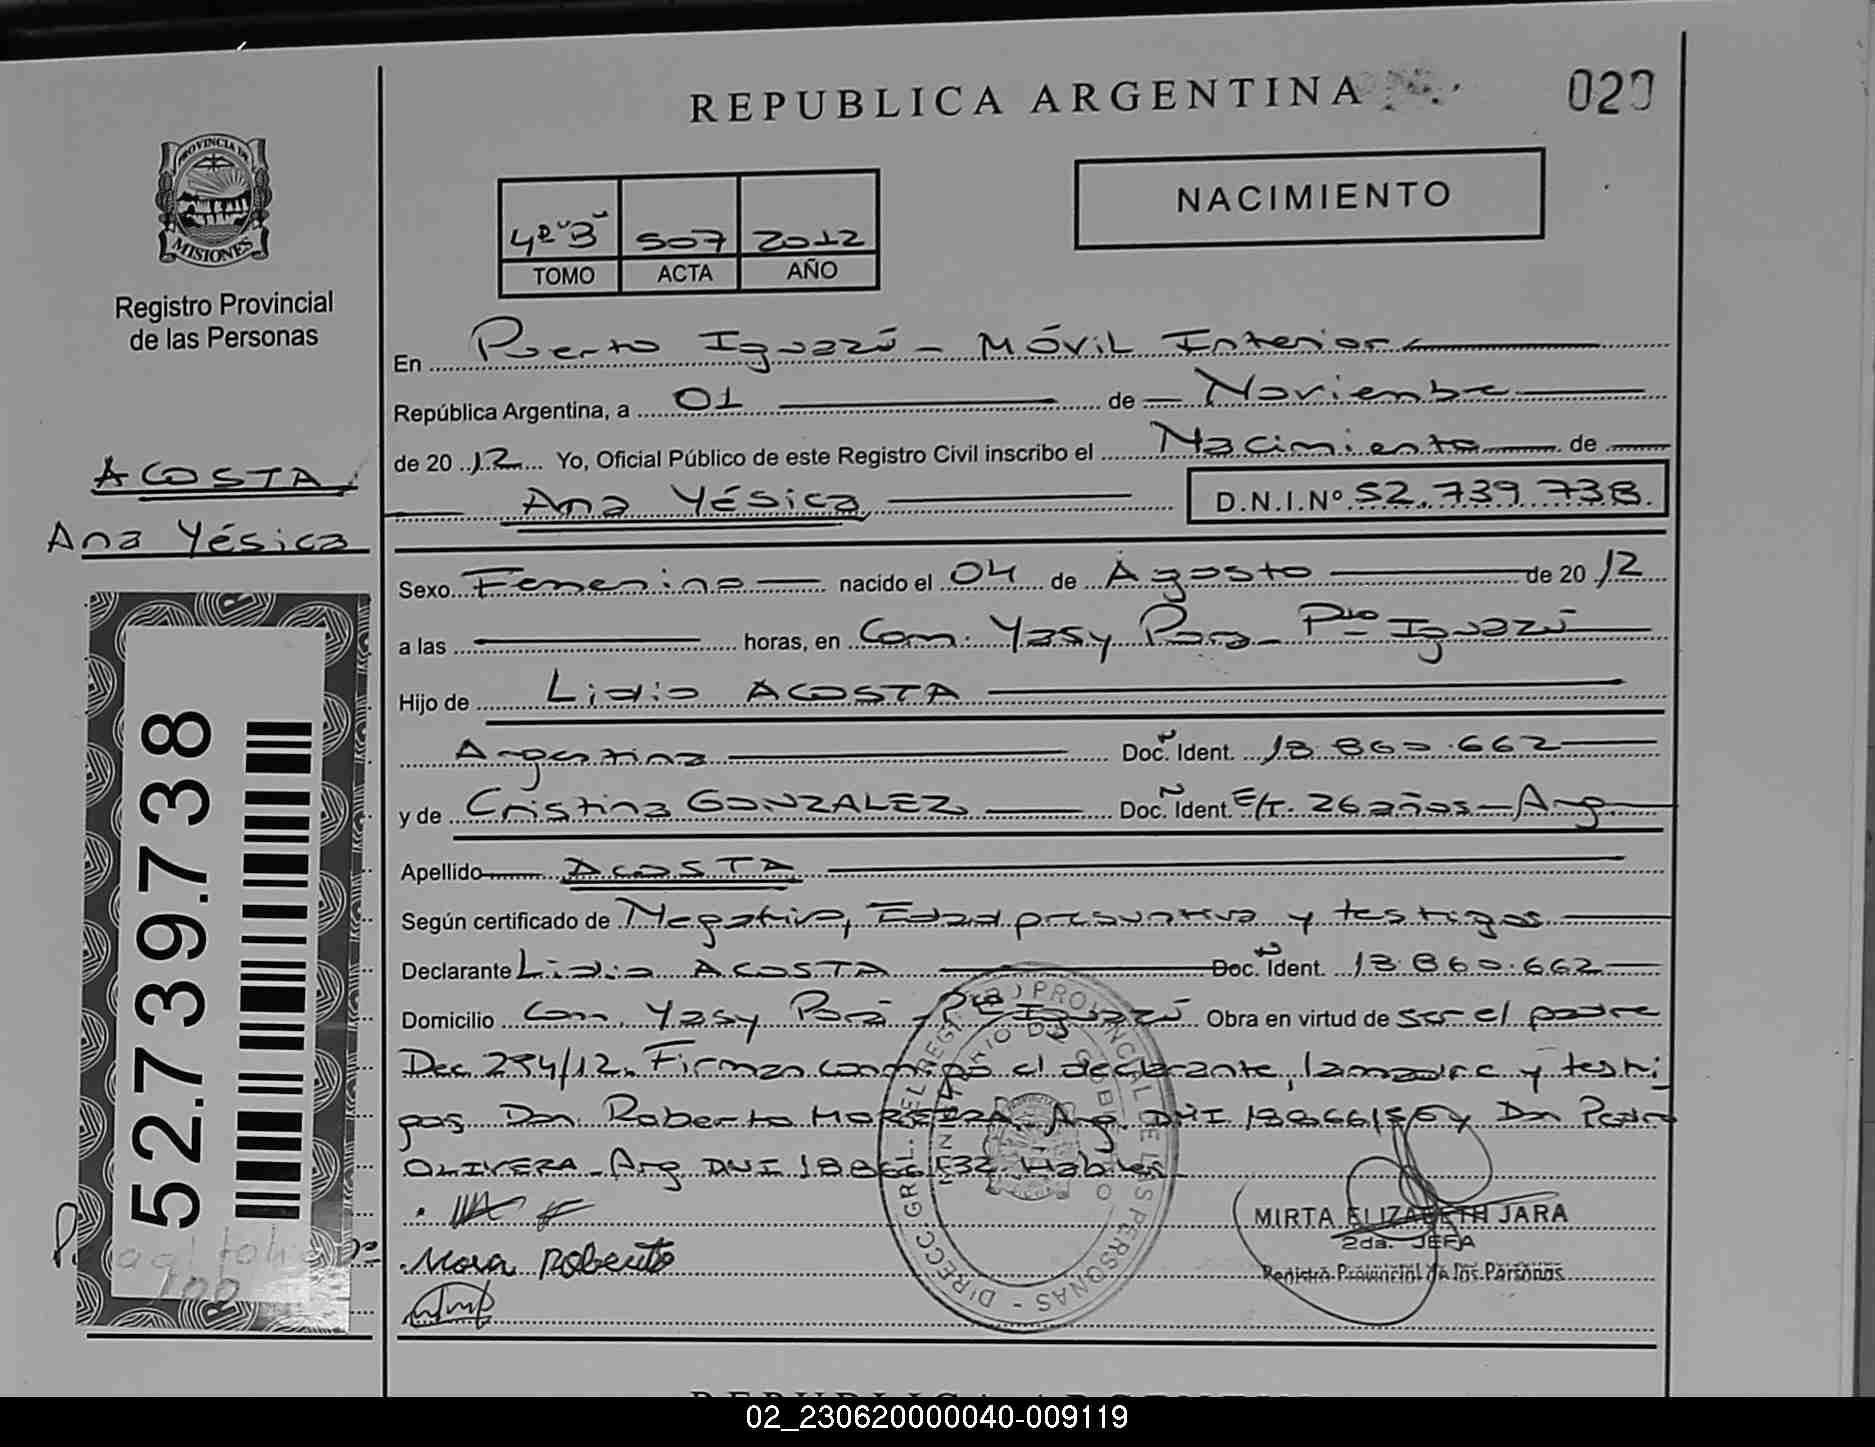 REPUBLICA ARGENTINA
020
PROVINCIA DE
MISIONES
Registro Provincial
de las Personas
4º "B" 507 2012
TOMO ACTA AÑO
NACIMIENTO
En Puerto Iguazú - Móvil Interior
República Argentina, a 01 de Noviembre
de 2012 Yo, Oficial Público de este Registro Civil inscribo el Nacimiento de
Ana Yésica D.N.I.Nº 52.739.738.
ACOSTA,
Ana Yésica
52.739.738
Sexo Femenino nacido el 04 de Agosto de 2012
a las horas, en Com. Yasy Pora - Pto Iguazú
Hijo de Lidio ACOSTA
Argentina Doc. Ident. 18.860.662
y de Cristina GONZALEZ Doc. Ident. E/T. 26 años - Arg
Apellido ACOSTA
Según certificado de Negativo, Edad presuntiva y testigos
Declarante Lidio ACOSTA Doc. Ident. 18.860.662
Domicilio Com. Yasy Porá - Pto Iguazú Obra en virtud de ser el padre
Dec 294/12. Firman conmigo el declarante, la madre y testi
gos Don Roberto Arg. DNI y Don Pedro
OLIVERA - Arg DNI Hábiles
Mora Roberto
MIRTA ELIZABETH JARA
2da. JEFA
Registro Provincial de las Personas
DIRECC. GRAL. DEL REGISTRO PROVINCIAL DE LAS PERSONAS
MINISTERIO DE GOBIERNO
REPUBLICA ARGENTINA
02_230620000040-009119